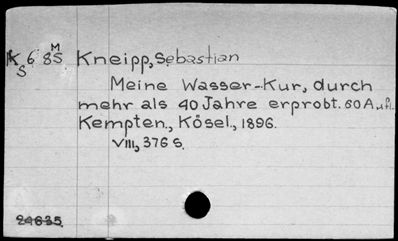 K 6 8 M5 Kneipp, Sebastian
S
Meine Wasser-Kur, durch
mehr als 40 Jahre erprobt. 60 Aufl.
Kempten., Kösel., 1896.
VIII, 376 S.
24635.